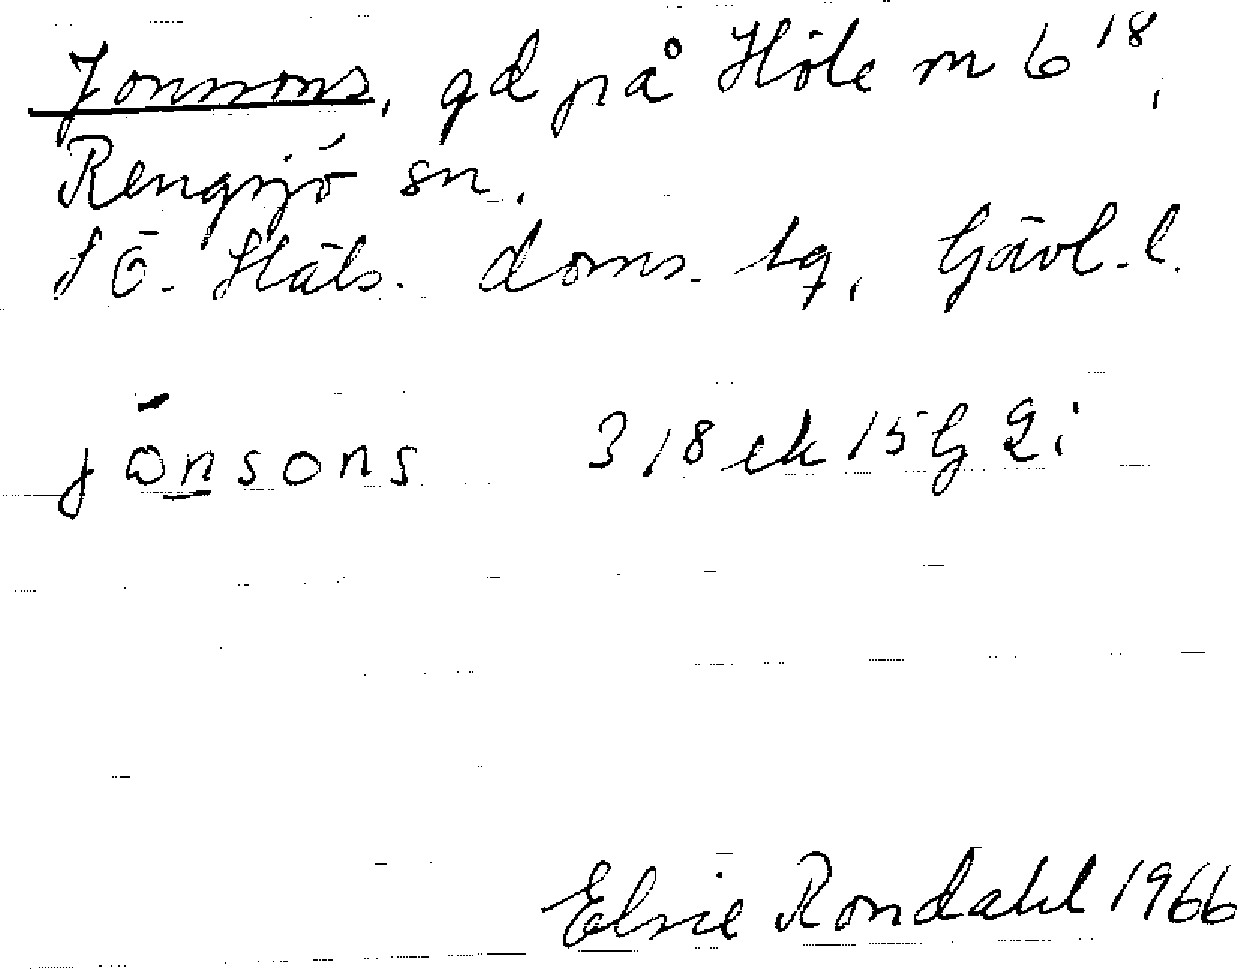 Jonsons, gd på Höle nr 6¹⁸,
Rengsjö sn.
SÖ. Häls. doms. tg, Gävl. l.
jōn̲sons 318 ek 15 G 2i
Elsie Rondahl 1966